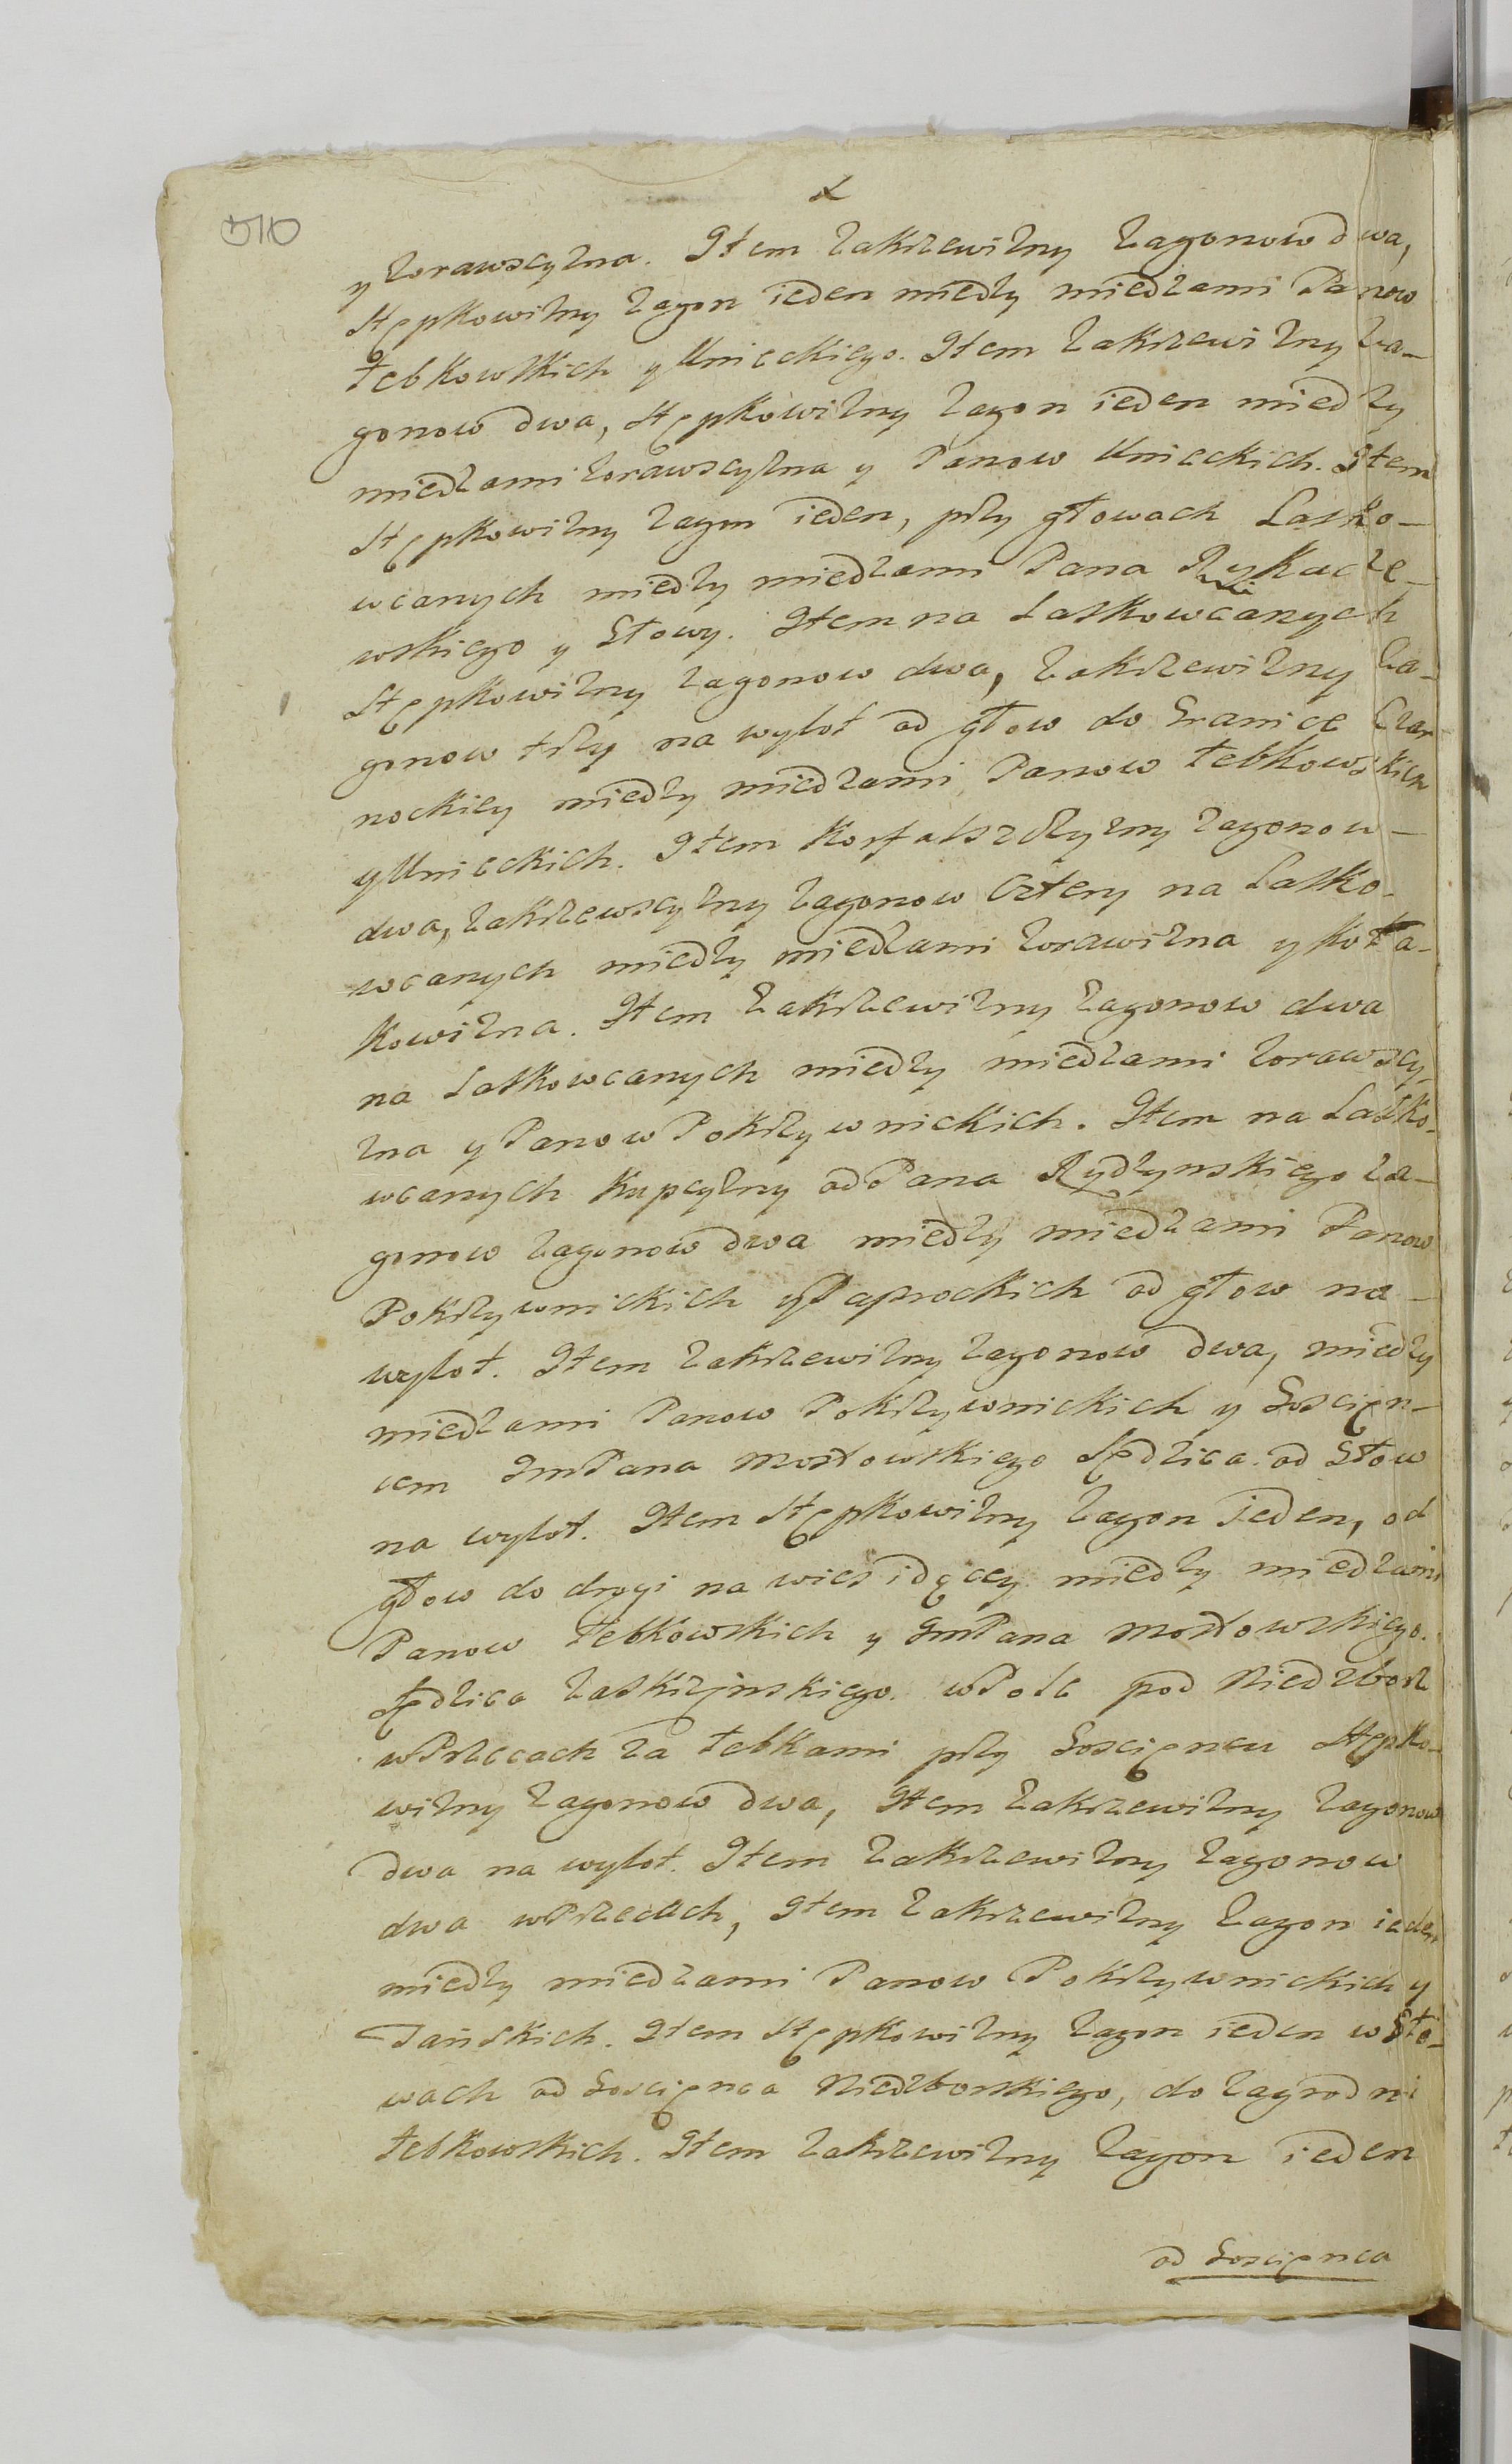 y Zorawsczyzna. Item Zakrzewizny Zagonow dwa,
Stępkowizny Zagon ieden miedzy miedzami Panow
Łebkowskich y Unieckiego. Item Zakrzewizny Za-
gonow dwa, Stępkowizny Zagon ieden miedzy
miedzami Zorawscyzna y Panow Unieckich. Item
Stępkowizny Zagon ieden, przy głowach Lasko-
wcanych miedzy miedzami Pana Rykacze-
wskiego y Głowy. Item na Laskowcanych
Stępkowizny Zagonow dwa, Zakrzewizny Za-
gonow trzy na wylot od głow do Granice Czar
nockiey miedzy miedzami Panow Łebkowskich
y Unieckich. Item Zagonow-
dwa, Zakrzewscyzny Zagonow Cztery na Lasko-
wcanych miedzy miedzami Zorawizna y Koła-
kowizna. Item Zakrzewizny Zagonow dwa
na Laskowcanych miedzy miedzami Zorawscy
zna y Panow Pokrzywnickich. Item na Lasko-
wcanych Kupcyzny od Pana Rydzynskiego Za-
gonow Zagonow dwa miedzy miedzami Panow
Pokrzywnickich y Paprockich od głow na-
wylot. Item Zakrzewizny Zagonow dwa, miedzy
miedzami Panow Pokrzywnickich y Goscięn-
cem ImPana Mostowskiego Sędzica od Głow
na wylot. Item Stępkowizny Zagon ieden, od
głow do drogi na wies idącey miedzy miedzami
Panow Łebkowskich y ImPana Mostowskiego.
Sędzica Zaskrzynskiego. w Pole pod Niedzborz
w Przecach za Łebkami przy Goscięncu Stępko-
wizny Zagonow dwa, Item Zakrzewizny Zagonow
dwa na wylot. Item Zakrzewizny Zagonow
dwa w Przecach, Item Zakrzewizny Zagon ieden
miedzy miedzami Panow Pokrzywnickich y
Jańskich. Item Stępkowizny Zagon ieden w Gło-
wach od Goscięnca Niedzborskiego, do Zagrod ni
Łebkowskich. Item Zakrzewizny Zagon ieden
od Goscięnca